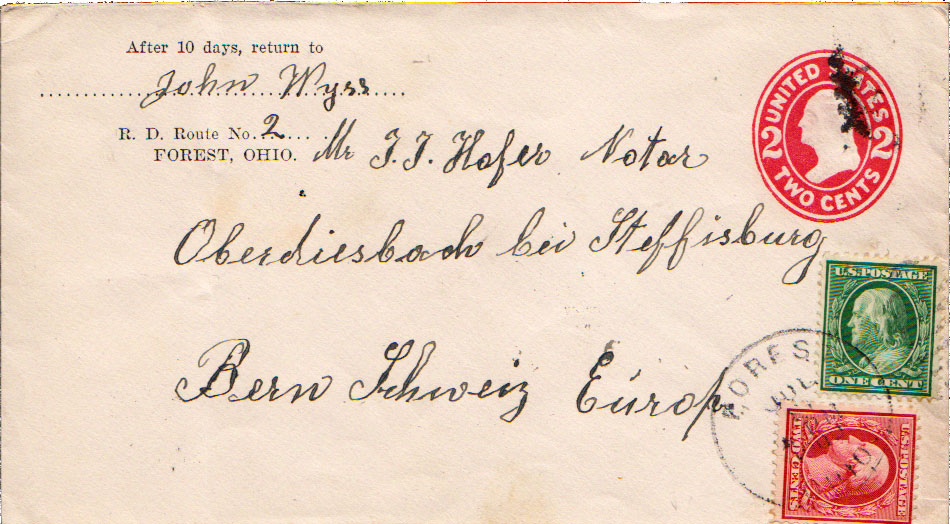 After 10 days, return to
John Wyss
R. D. Route No. 2
FOREST, OHIO.
Mr J. J. Hofer Notar
Oberdiesbach bei Steffisburg
Bern Schweiz Europ
UNITED STATES
2 2
TWO CENTS
U.S. POSTAGE
ONE CENT
FORES
JUL
U.S. POSTAGE
TWO CENTS